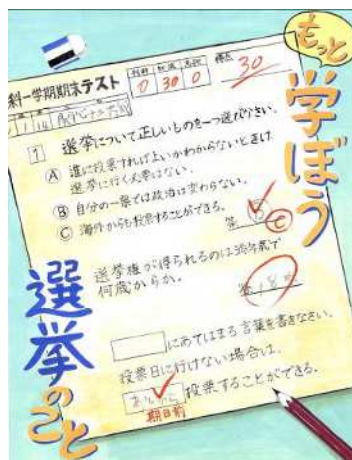 もっと
学ぼう
選挙のこと
科一学期期末テスト
0 30 0
得点
30
1 選挙について正しいものを一つ選びなさい。
A 誰に投票すれば良いかわからないときは
選挙に行く必要はない。
B 自分の一票では政治は変わらない。
C 海外からも投票することができる。
答 B C
選挙権が得られるのは
何歳からか。
答 18才
にあてはまる言葉を書きなさい。
投票日に行けない場合は、
投票することができる。
期日前